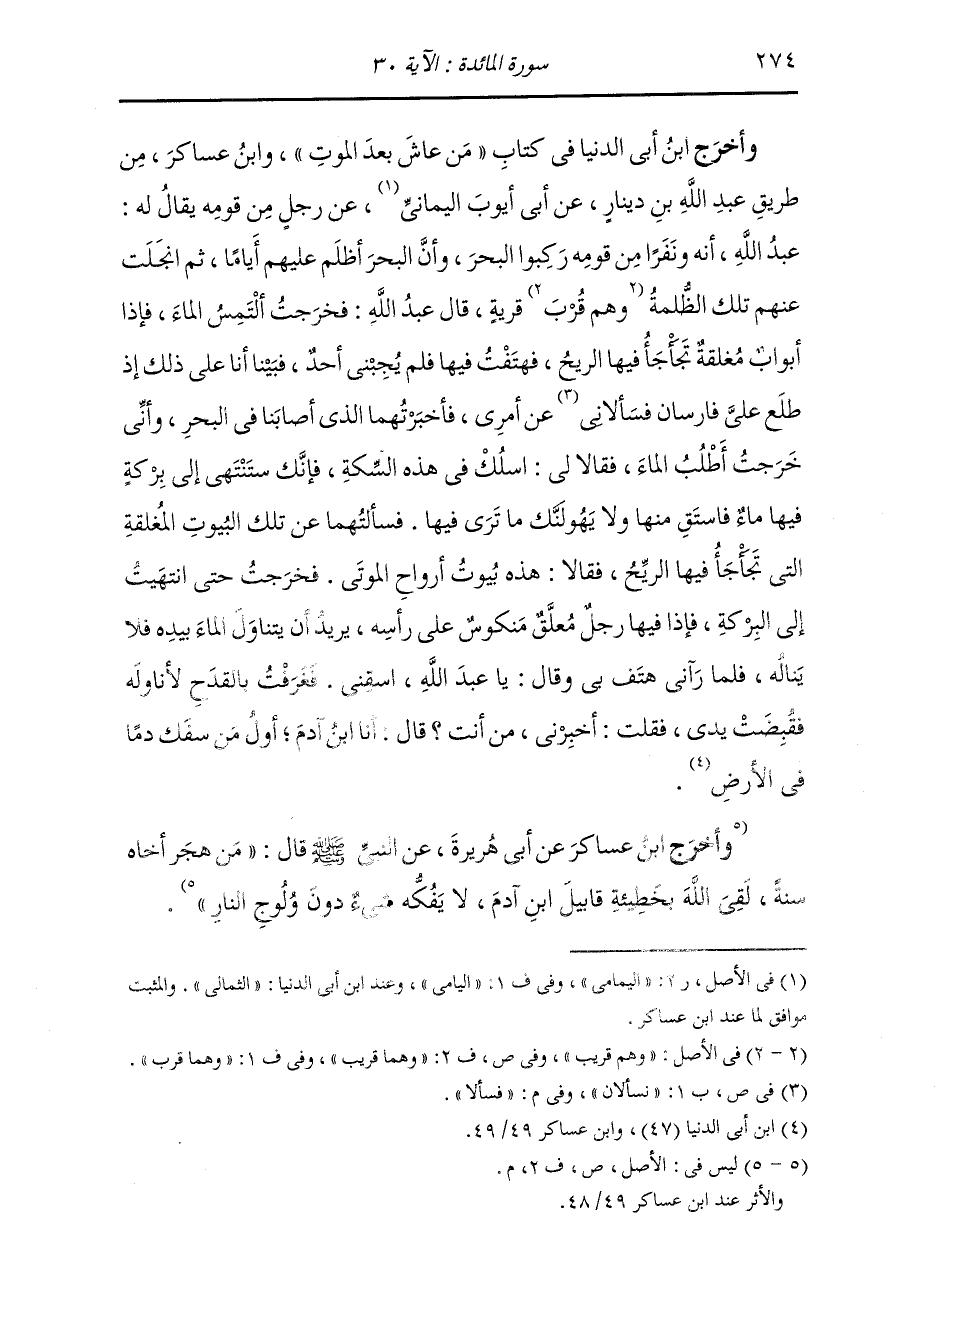 ٢٧٤ سورة المائدة : الآية ٣٠
وأخرَج ابنُ أبى الدنيا فى كتابِ « مَن عاشَ بعدَ الموتِ » ، وابنُ عساكرَ ، مِن
طريقِ عبدِ اللَّهِ بنِ دينارٍ ، عن أبى أيوبَ اليمانىِّ(١) ، عن رجلٍ مِن قومِه يقالُ له :
عبدُ اللَّهِ ، أنه ونَفَرًا مِن قومِه رَكِبوا البحرَ ، وأنَّ البحرَ أظلَم عليهم أيامًا ، ثم انجَلَت
عنهم تلك الظُّلمةُ (٢وهم قُرْبَ٢) قريةٍ ، قال عبدُ اللَّهِ : فخرَجتُ ألْتَمِسُ الماءَ ، فإذا
أبوابٌ مُغلقةٌ تَجَأْجَأُ فيها الريحُ ، فهتَفْتُ فيها فلم يُجِبْنى أحدٌ ، فبَيْنا أنا على ذلك إذ
طلَع علىَّ فارسان فسَألانِى(٣) عن أمرِى ، فأخبَرْتُهما الذى أصابَنا فى البحرِ ، وأنِّى
خَرَجتُ أَطْلُبُ الماءَ ، فقالا لى : اسلُكْ فى هذه السِّكةِ ، فإنَّك ستَنْتَهى إلى بِرْكةٍ
فيها ماءٌ فاستَقِ منها ولا يَهُولَنَّك ما تَرَى فيها . فسألتُهما عن تلك البُيوتِ المُغلقةِ
التى تَجَأْجَأُ فيها الرِّيحُ ، فقالا : هذه بُيوتُ أرواحِ الموتَى . فخرَجتُ حتى انتهَيتُ
إلى البِرْكةِ ، فإذا فيها رجلٌ مُعلَّقٌ مَنكوسٌ على رأسِه ، يريدُ أن يتناوَلَ الماءَ بيدِه فلا
يَنالُه ، فلما رَآنى هتَف بى وقال : يا عبدَ اللَّهِ ، اسقِنى . فغَرَفْتُ بالقدَحِ لأناولَه
فقُبِضَتْ يدى ، فقلت : أخبِرْنى ، من أنت ؟ قال : أنا ابنُ آدمَ ؛ أولُ مَن سفَك دمًا
فى الأرضِ(٤) .
(٥وأخرَج ابنُ عساكرَ عن أبى هُريرةَ ، عن النبىِّ ﷺ قال : « مَن هجَر أخاه
سنةً ، لَقِىَ اللَّهَ بخَطِيئةِ قابيلَ ابنِ آدمَ ، لا يَفُكُّه شىءٌ دونَ وُلُوجِ النارِ »٥) .
(١) فى الأصل ، ر ٢ : « اليمامى » ، وفى ف ١ : « اليامى » ، وعند ابن أبى الدنيا : « الثمالى » . والمثبت
موافق لما عند ابن عساكر .
(٢ - ٢) فى الأصل : « وهم قريب » ، وفى ص ، ف ٢ : « وهما قريب » ، وفى ف ١ : « وهما قرب » .
(٣) فى ص ، ب ١ : « نسألان » ، وفى م : « فسألا » .
(٤) ابن أبى الدنيا (٤٧) ، وابن عساكر ٤٩/ ٤٩.
(٥ - ٥) ليس فى : الأصل ، ص ، ف ٢ ، م .
والأثر عند ابن عساكر ٤٩/ ٤٨.